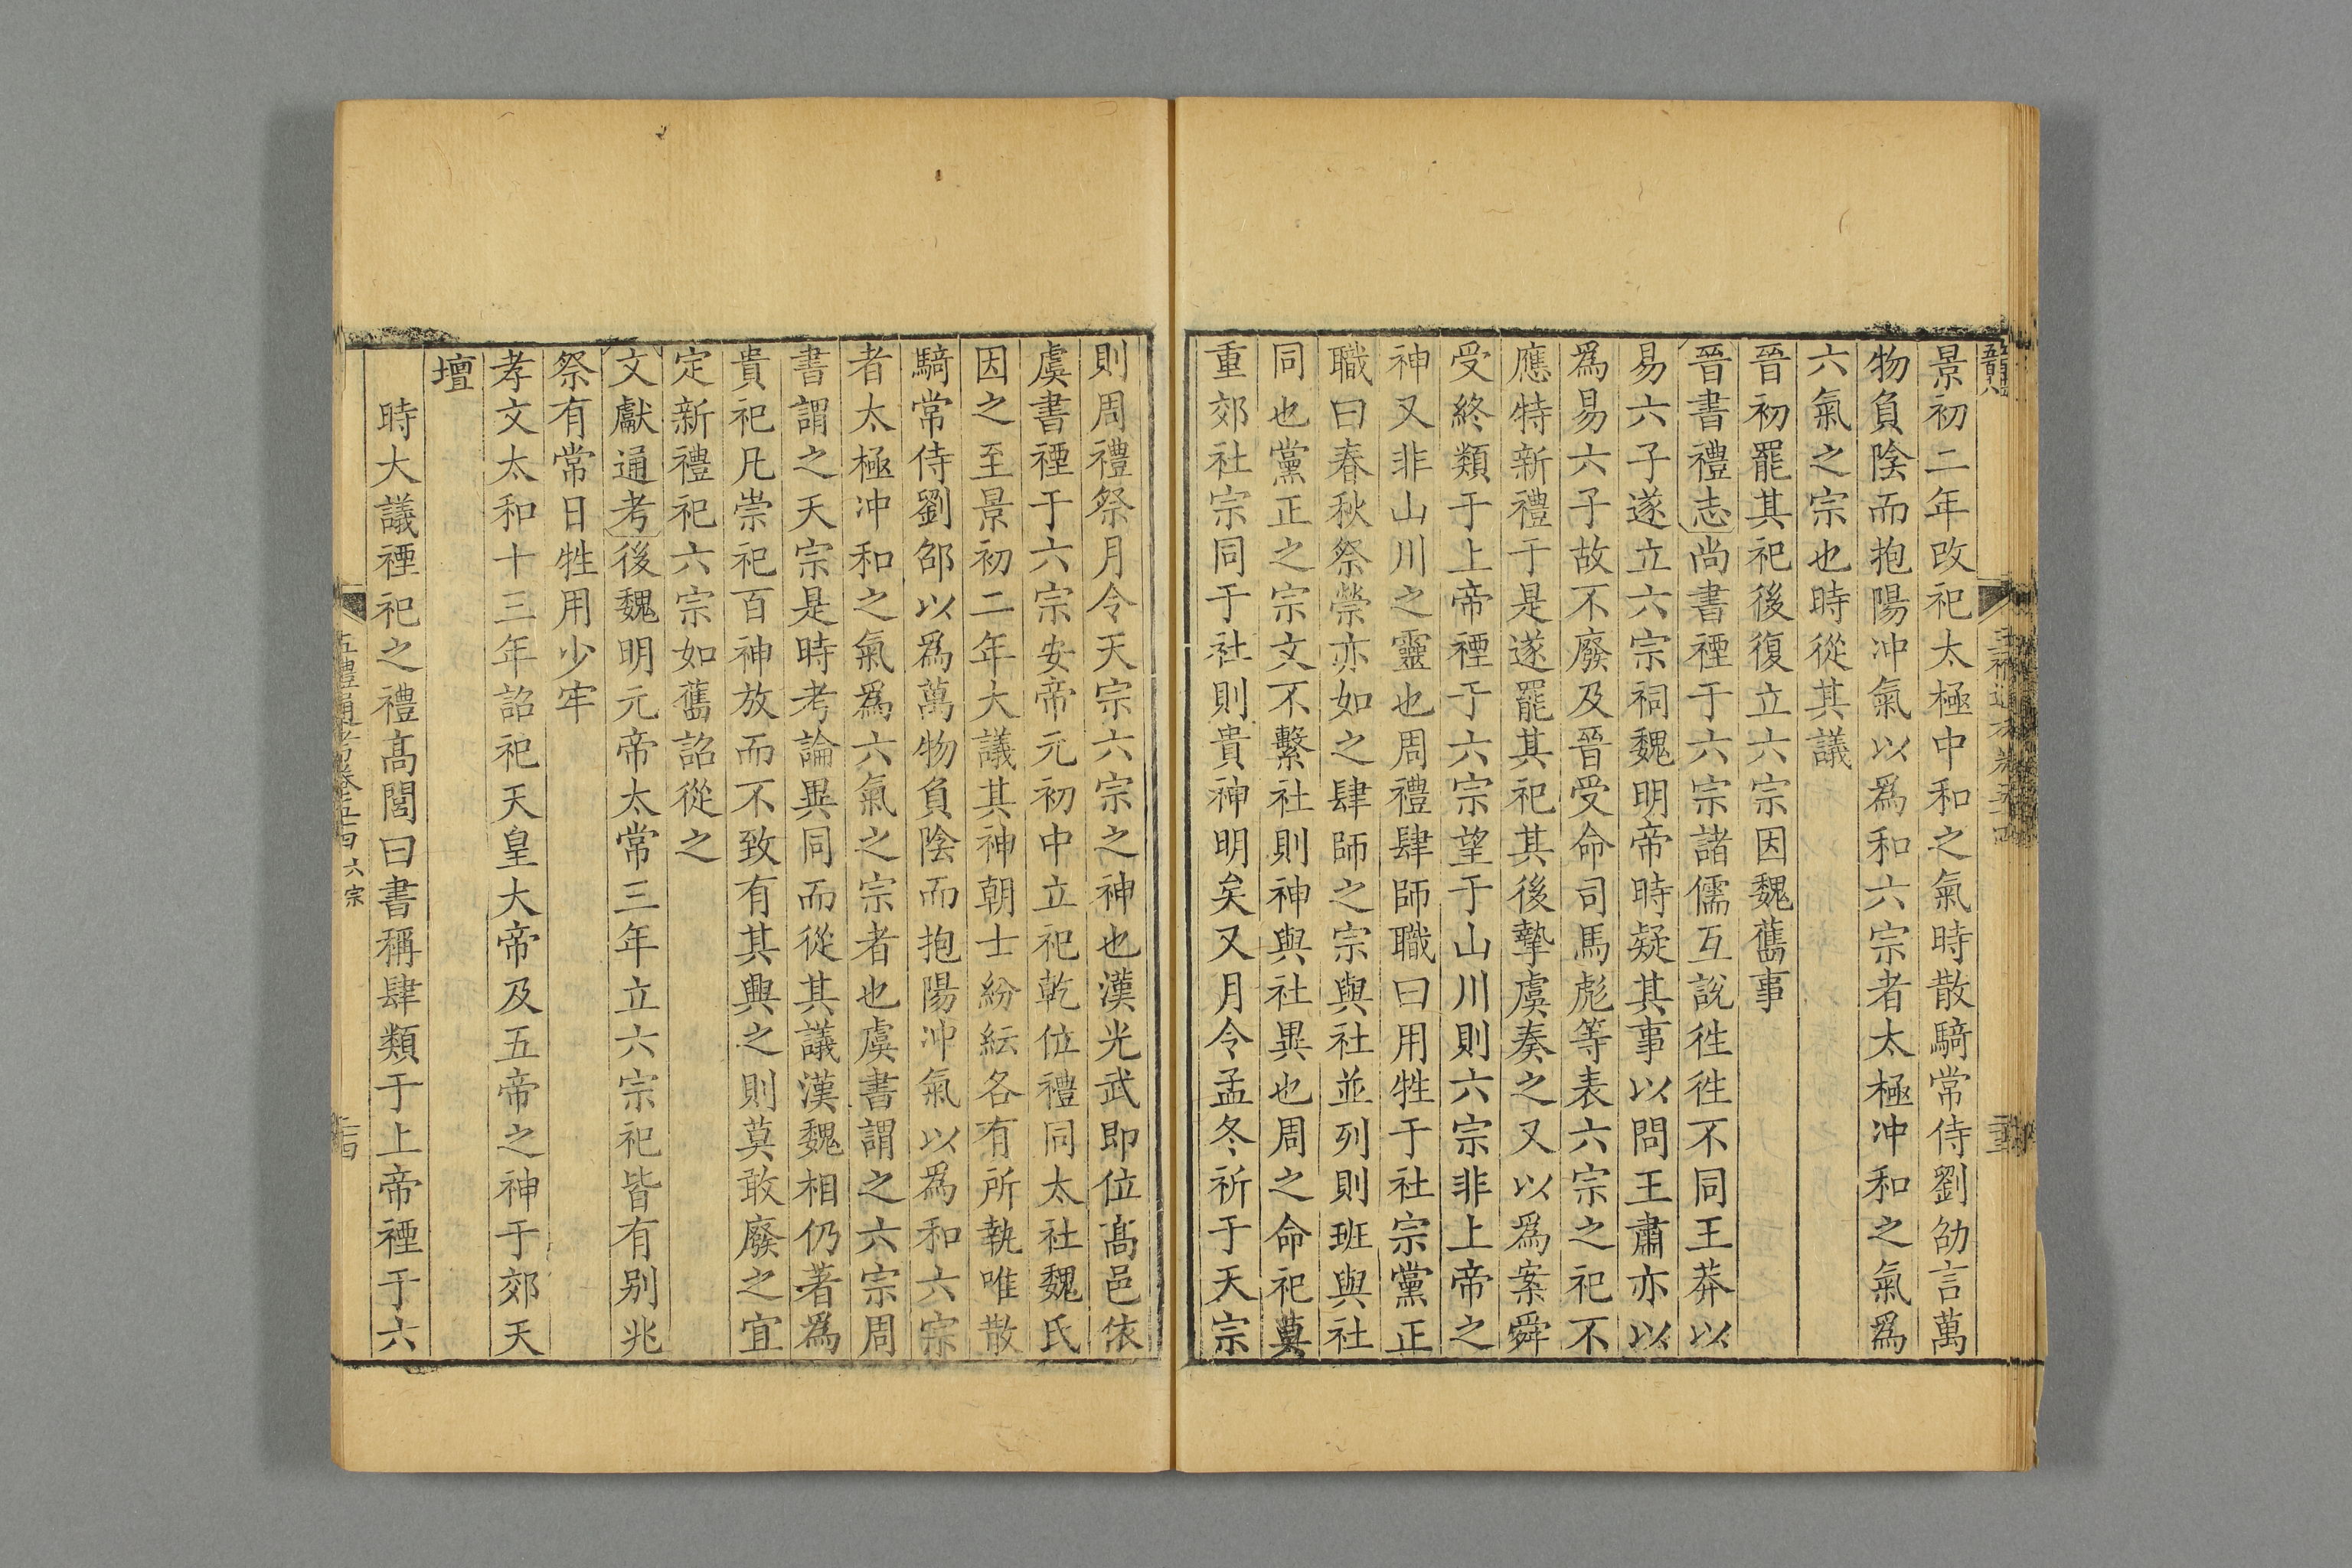 景初二年改祀太極中和之氣時散騎常侍劉劭言萬
物負陰而抱陽冲氣以爲和六宗者太極冲和之氣爲
六氣之宗也時從其議
晉初罷其祀後復立六宗因魏舊事
晉書禮志尚書禋于六宗諸儒互說徃徃不同王莽以
易六子遂立六宗祠魏明帝時疑其事以問王肅亦以
爲易六子故不廢及晉受命司馬彪等表六宗之祀不
應特新禮于是遂罷其祀其後摯虞奏之又以爲案舜
受終類于上帝禋于六宗望于山川則六宗非上帝之
神又非山川之靈也周禮肆師職曰用牲于社宗黨正
職曰春秋祭禜亦如之肆師之宗與社並列則班與社
同也黨正之宗文不繫社則神與社異也周之命祀莫
重郊社宗同于社則貴神明矣又月令孟冬祈于天宗
則周禮祭月令天宗六宗之神也漢光武即位高邑依
虞書禋于六宗安帝元初中立祀乾位禮同太社魏氏
因之至景初二年大議其神朝士紛紜各有所執唯散
騎常侍劉邵以爲萬物負陰而抱陽冲氣以爲和六宗
者太極冲和之氣爲六氣之宗者也虞書謂之六宗周
書謂之天宗是時考論異同而從其議漢魏相仍著爲
貴祀凡崇祀百神放而不致有其興之則莫敢廢之宜
定新禮祀六宗如舊詔從之
文獻通考後魏明元帝太常三年立六宗祀皆有别兆
祭有常日牲用少牢
孝文太和十三年詔祀天皇大帝及五帝之神于郊天
壇
時大議禋祀之禮高閭曰書稱肆類于上帝禋于六
五禮通考卷五百 六宗